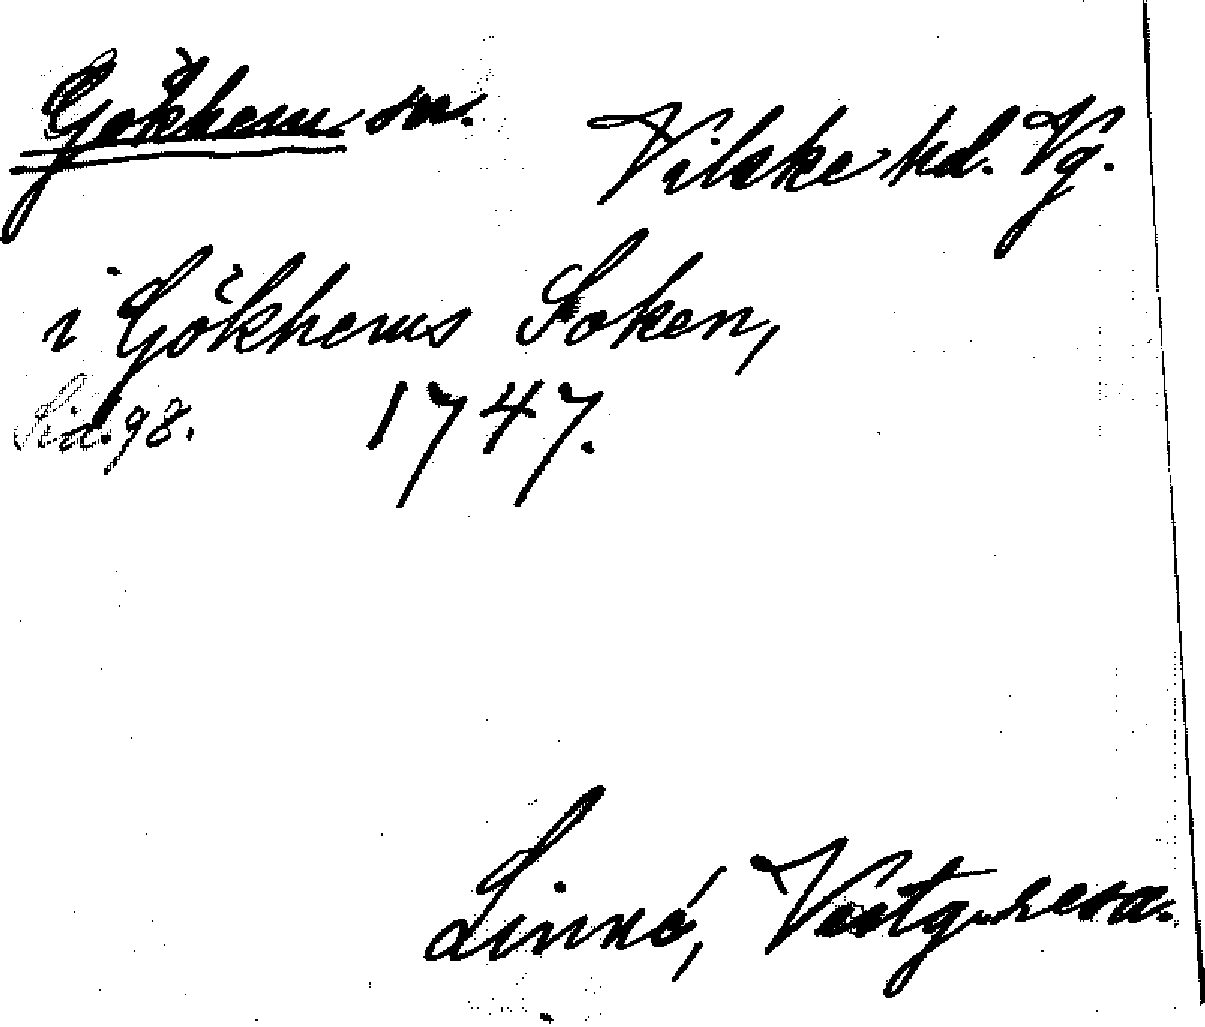 Gökhem sn. Vilske hd. Vg.
i Gökhems Soken,
Sid. 98. 1747.
Linné, Västg. resa.